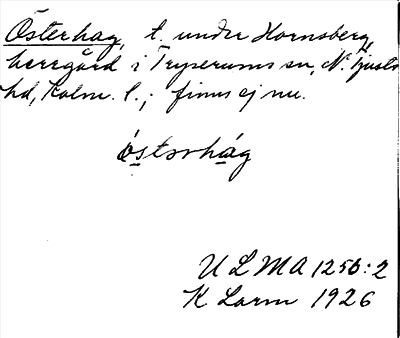 Österhag, t. under Hornsberg,
herrgård i Tryserums sn, N. Tjusts
hd, Kalm. l.; finns ej nu.
óstərhág
ULMA 125b:2
K Larm 1926